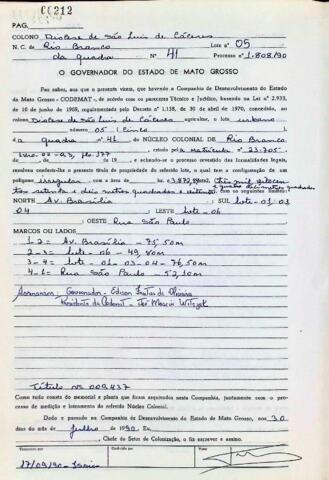 00212
PAG.
COLONO Diocese de São Luis de Cáceres
N. C. de Rio Branco Lote nº 05
da quadra Nº 41 Processo nº 1.808/90
O GOVERNADOR DO ESTADO DE MATO GROSSO
Faz saber, aos que o presente virem, que havendo a Companhia de Desenvolvimento do Estado
de Mato Grosso - CODEMAT -, de acordo com os pareceres Técnico e Jurídico, baseado na Lei nº 2.933,
de 10 de junho de 1969, regulamentada pelo Decreto nº 1.138, de 30 de abril de 1970, concedido, ao
colono Diocese de São Luis de Cáceres agricultor, o lote urbano
número 05 (Cinco)
da quadra nº 41 DO NÚCLEO COLONIAL DE Rio Branco
, criado pela matrícula nº 23.705
livro 00-03, fls. 177
de de 19 , e achando-se o processo revestido das formalidades legais,
resolvem conferir-lhe o presente título de propriedade do referido lote, o qual tem a configuração de um
polígono irregular
tos setenta e dois metros quadrados e com os seguintes limites:
NORTH Av. Brasília SUL lote 01-03
04 ; LESTE lote-06
; OESTE Rua São Paulo
MARCOS OU LADOS
1-2 = Av. Brasília - 75,50m
2-3 = lote - 06 - 49,80m
3-4 = lote - 01-03-04 - 76,50m
4-1 = Rua São Paulo - 52,10m
Assinaram: Governador - Edison Freitas de Oliveira
Presidente da Codemat -
Título Nº 009437
Como tudo consta do memorial e planta que ficam arquivados nesta Companhia, juntamente com o pro-
cesso de medição e loteamento do referido Núcleo Colonial.
Dado e passado na Companhia de Desenvolvimento do Estado de Mato Grosso, aos 30
dias do mês de Julho de 1990. Eu,
, Chefe do Setor de Colonização, o fiz escrever e assino.
Transcrito em Conferido por Visto
17/09/90